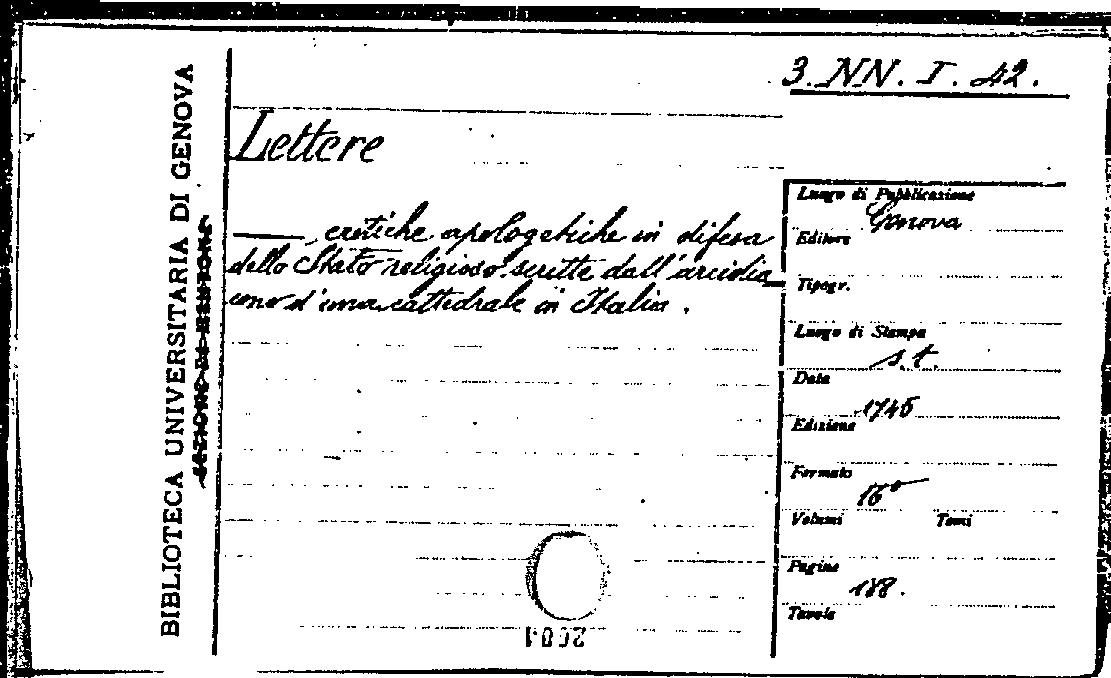 3. NN. I. 42.
BIBLIOTECA UNIVERSITARIA DI GENOVA
Lettere
——, critiche apologetiche in difesa
dello Stato religioso scritte dall'arcidia
cono d'una cattedrale in Italia.
Luogo di Pubblicazione
Genova
Editore
Tipogr.
Luogo di Stampa
s.t.
Data
1745
Edizione
Formato
16°
Volumi Tomi
Pagine
188.
Tavole
2004